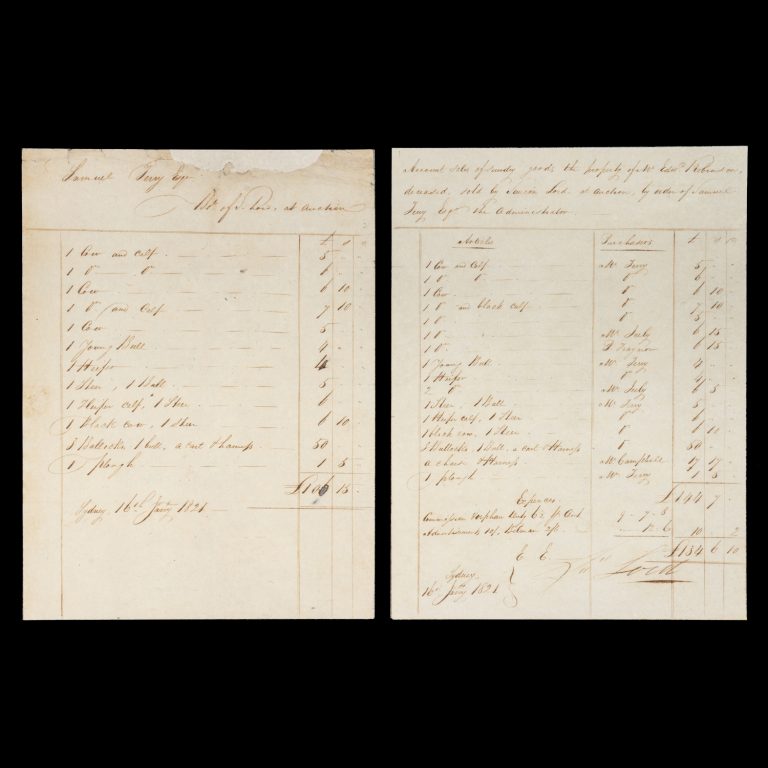 Samuel Terry Esqr
at Auction
£ s
1 Cow and Calf 5 -
1 Do Do 6 -
1 Cow 6 10
1 Do and Calf 7 10
1 Cow 5
1 Young Bull 4 -
1 Heifer 4
1 Steer, 1 Bull 5
1 Heifer calf, 1 Steer 6
1 black cow, 1 Steer 6 10
8 Bullocks, 1 bull, a cart & harness 50
1 plough 1 5
£106 15
Sydney 16th Jany 1821
Account sales of sundry goods the property of Mr Edwd Robinson
deceased, sold by Simeon Lord at Auction, by order of Samuel
Terry Esqr the Administrator
Articles Purchasers £
1 Cow and Calf Mr Terry 5
1 Do Do Do 6
1 Cow Do 6 10
1 Do and black calf Do 7 10
1 Do Do 5
1 Do Mr 6 15
1 Do 6 15
1 Young Bull Mr Terry 4
1 Heifer Do 4
2 Do Mr 6 5
1 Steer, 1 Bull Mr Terry 5
1 Heifer calf, 1 Steer Do 6
1 black cow, 1 Steer Do 6 10
8 Bullocks, 1 Bull, a cart & Harness Do 50
a & Harness Mr Campbell 17 17
1 plough Mr Terry 1 5
Expences £144 7
Commission Orphan duty Ct 9 - 7 - 8
Advertisement Bellman 12 - 6 10 2
£134 6 10
E E Lord
Sydney
16th Jany 1821